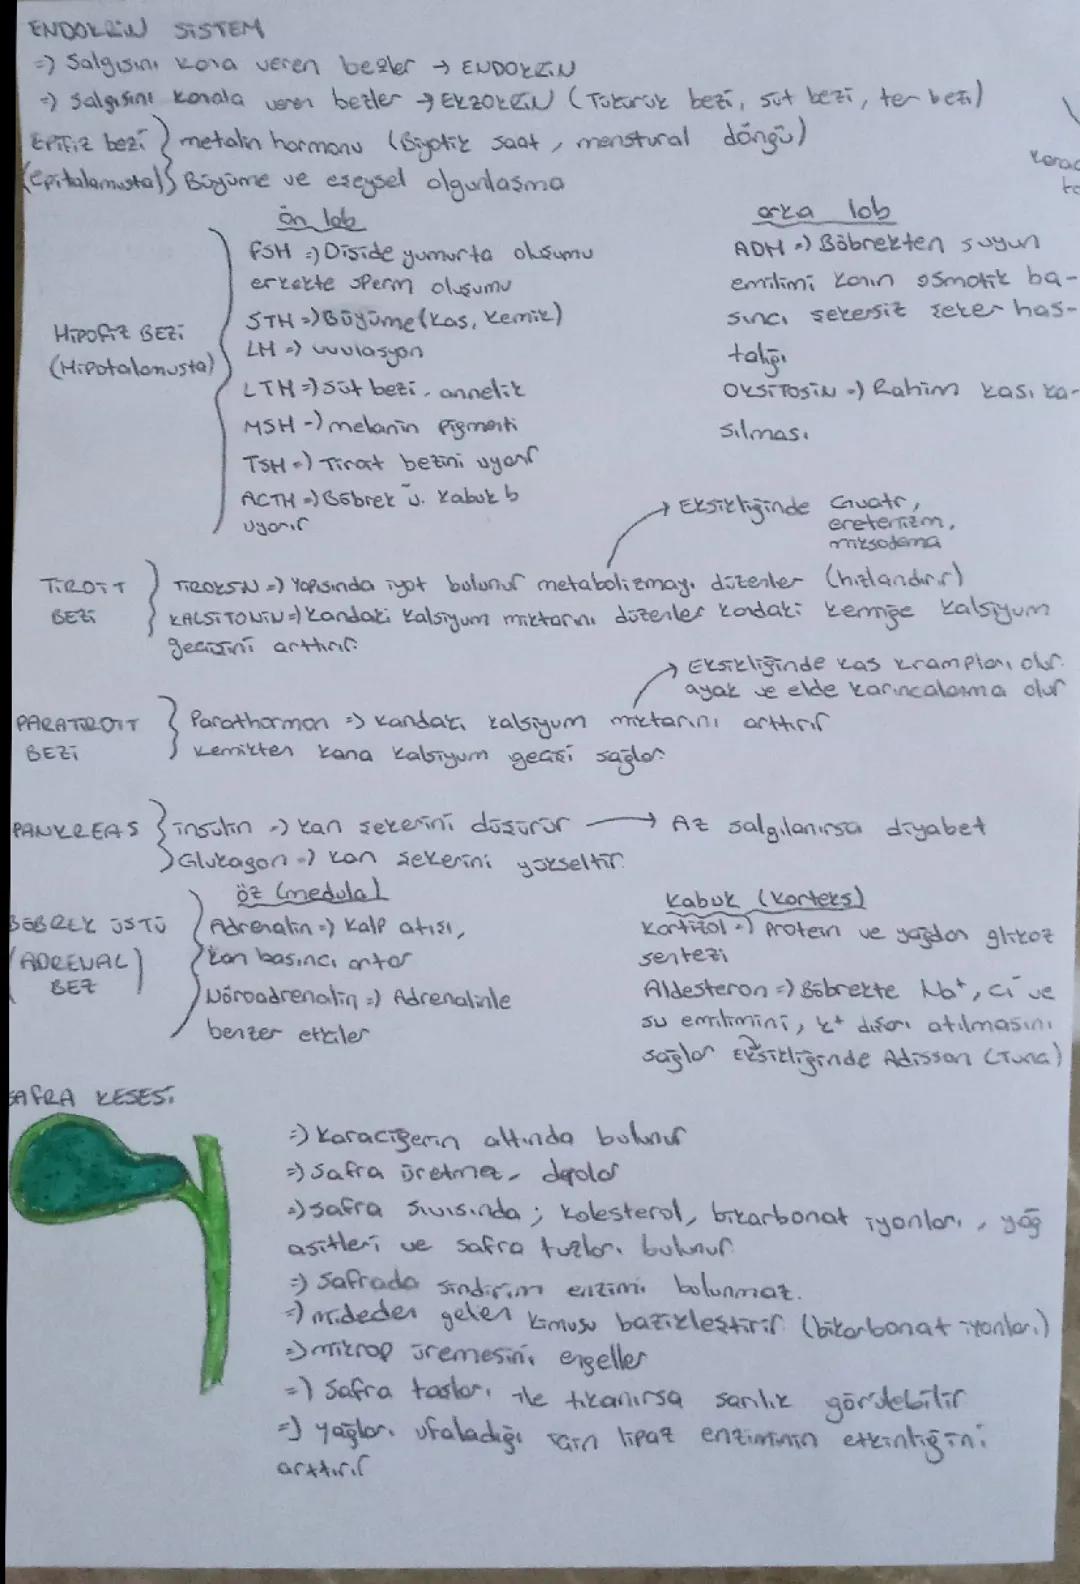 ENDOKRİN SİSTEM
=> Salgısını kana veren bezler → ENDOKRİN
=> Salgısını kanala veren bezler → EKZOKRİN (Tükürük bezi, süt bezi, ter bezi)
EPİFİZ bezi } metalin hormonu (Biyotik saat, menstural döngü)
(epitalamusta) Büyüme ve eşeysel olgunlaşma
ön lob
FSH => Dişide yumurta oluşumu
erkekte sperm oluşumu
STH => Büyüme (Kas, Kemik)
LH => uvulasyon
LTH => Süt bezi, annelik
MSH => melanin pigmenti
TSH => Tiroit bezini uyarır
ACTH => Böbrek ü. kabuk b
uyarır
HİPOFİZ BEZİ
(Hipotalamusta)
arka lob
ADH => Böbrekten suyun
emilimi kanın osmotik ba-
sıncı şekersiz şeker has-
talığı
OKSİTOSİN => Rahim kası ka-
sılması
→ Eksikliğinde Guatr,
ereterizm,
miksodema
TİROİT BEZİ } TİROKSİN => Yapısında iyot bulunur metabolizmayı düzenler (hızlandırır)
KALSİTONİN => Kandaki kalsiyum miktarını düzenler kandaki kemiğe kalsiyum
geçişini arttırır.
→ Eksikliğinde kas krampları olur.
ayak ve elde karıncalanma olur
PARATİROİT BEZİ } Parathormon => kandaki kalsiyum miktarını arttırır
kemikten kana kalsiyum geçişi sağlar.
PANKREAS } insülin => kan şekerini düşürür → Az salgılanırsa diyabet
Glukagon => kan şekerini yükseltir.
öz (medula)
BÖBREK ÜSTÜ
(ADRENAL)
BEZ
Adrenalin => Kalp atışı,
kan basıncı artar
Nöroadrenalin => Adrenalinle
benzer etkiler
Kabuk (Korteks)
Kortizol => Protein ve yağdan glikoz
sentezi
Aldesteron => Böbrekte Na+, Cl ve
su emilimini, K+ dışarı atılmasını
sağlar Eksikliğinde Adisson (Tunç)
SAFRA KESESİ
=> Karaciğerin altında bulunur
=> Safra üretmez, depolar
=> Safra sıvısında; kolesterol, bikarbonat iyonları, yağ
asitleri ve safra tuzları bulunur
=> Safrada sindirim enzimi bulunmaz.
=> mideden gelen kimusu bazikleştirir. (bikarbonat iyonları)
=> mikrop üremesini engeller
=> Safra taşları ile tıkanırsa sarılık görülebilir
=> yağları ufaladığı için lipaz enziminin etkinliğini
arttırır